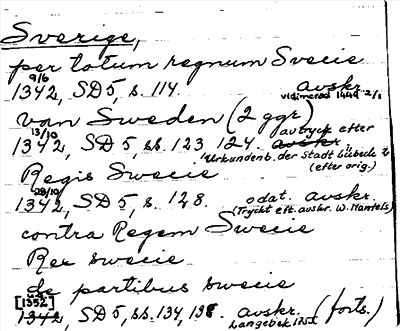 Sverige,
per totum regnum Svecie
9/6
1342, SD 5, s. 114. avskr.
vidimerad 1409 2/1
van Sweden (2 ggr)
13/10 avtryck efter
1342, SD 5, ss. 123, 124. avskr.
"Urkundenb. der Stadt Lübeck 2
(efter orig.)
Regis Swecie
28/10
1342, SD 5, s. 128. odat. avskr.
(Tryckt eft. avskr. W. Mantels)
contra Regem Swecie
Rex swecie
de partibus swecie
[1352]
1342, SD 5, ss. 134, 138. avskr. (forts.)
Langebek